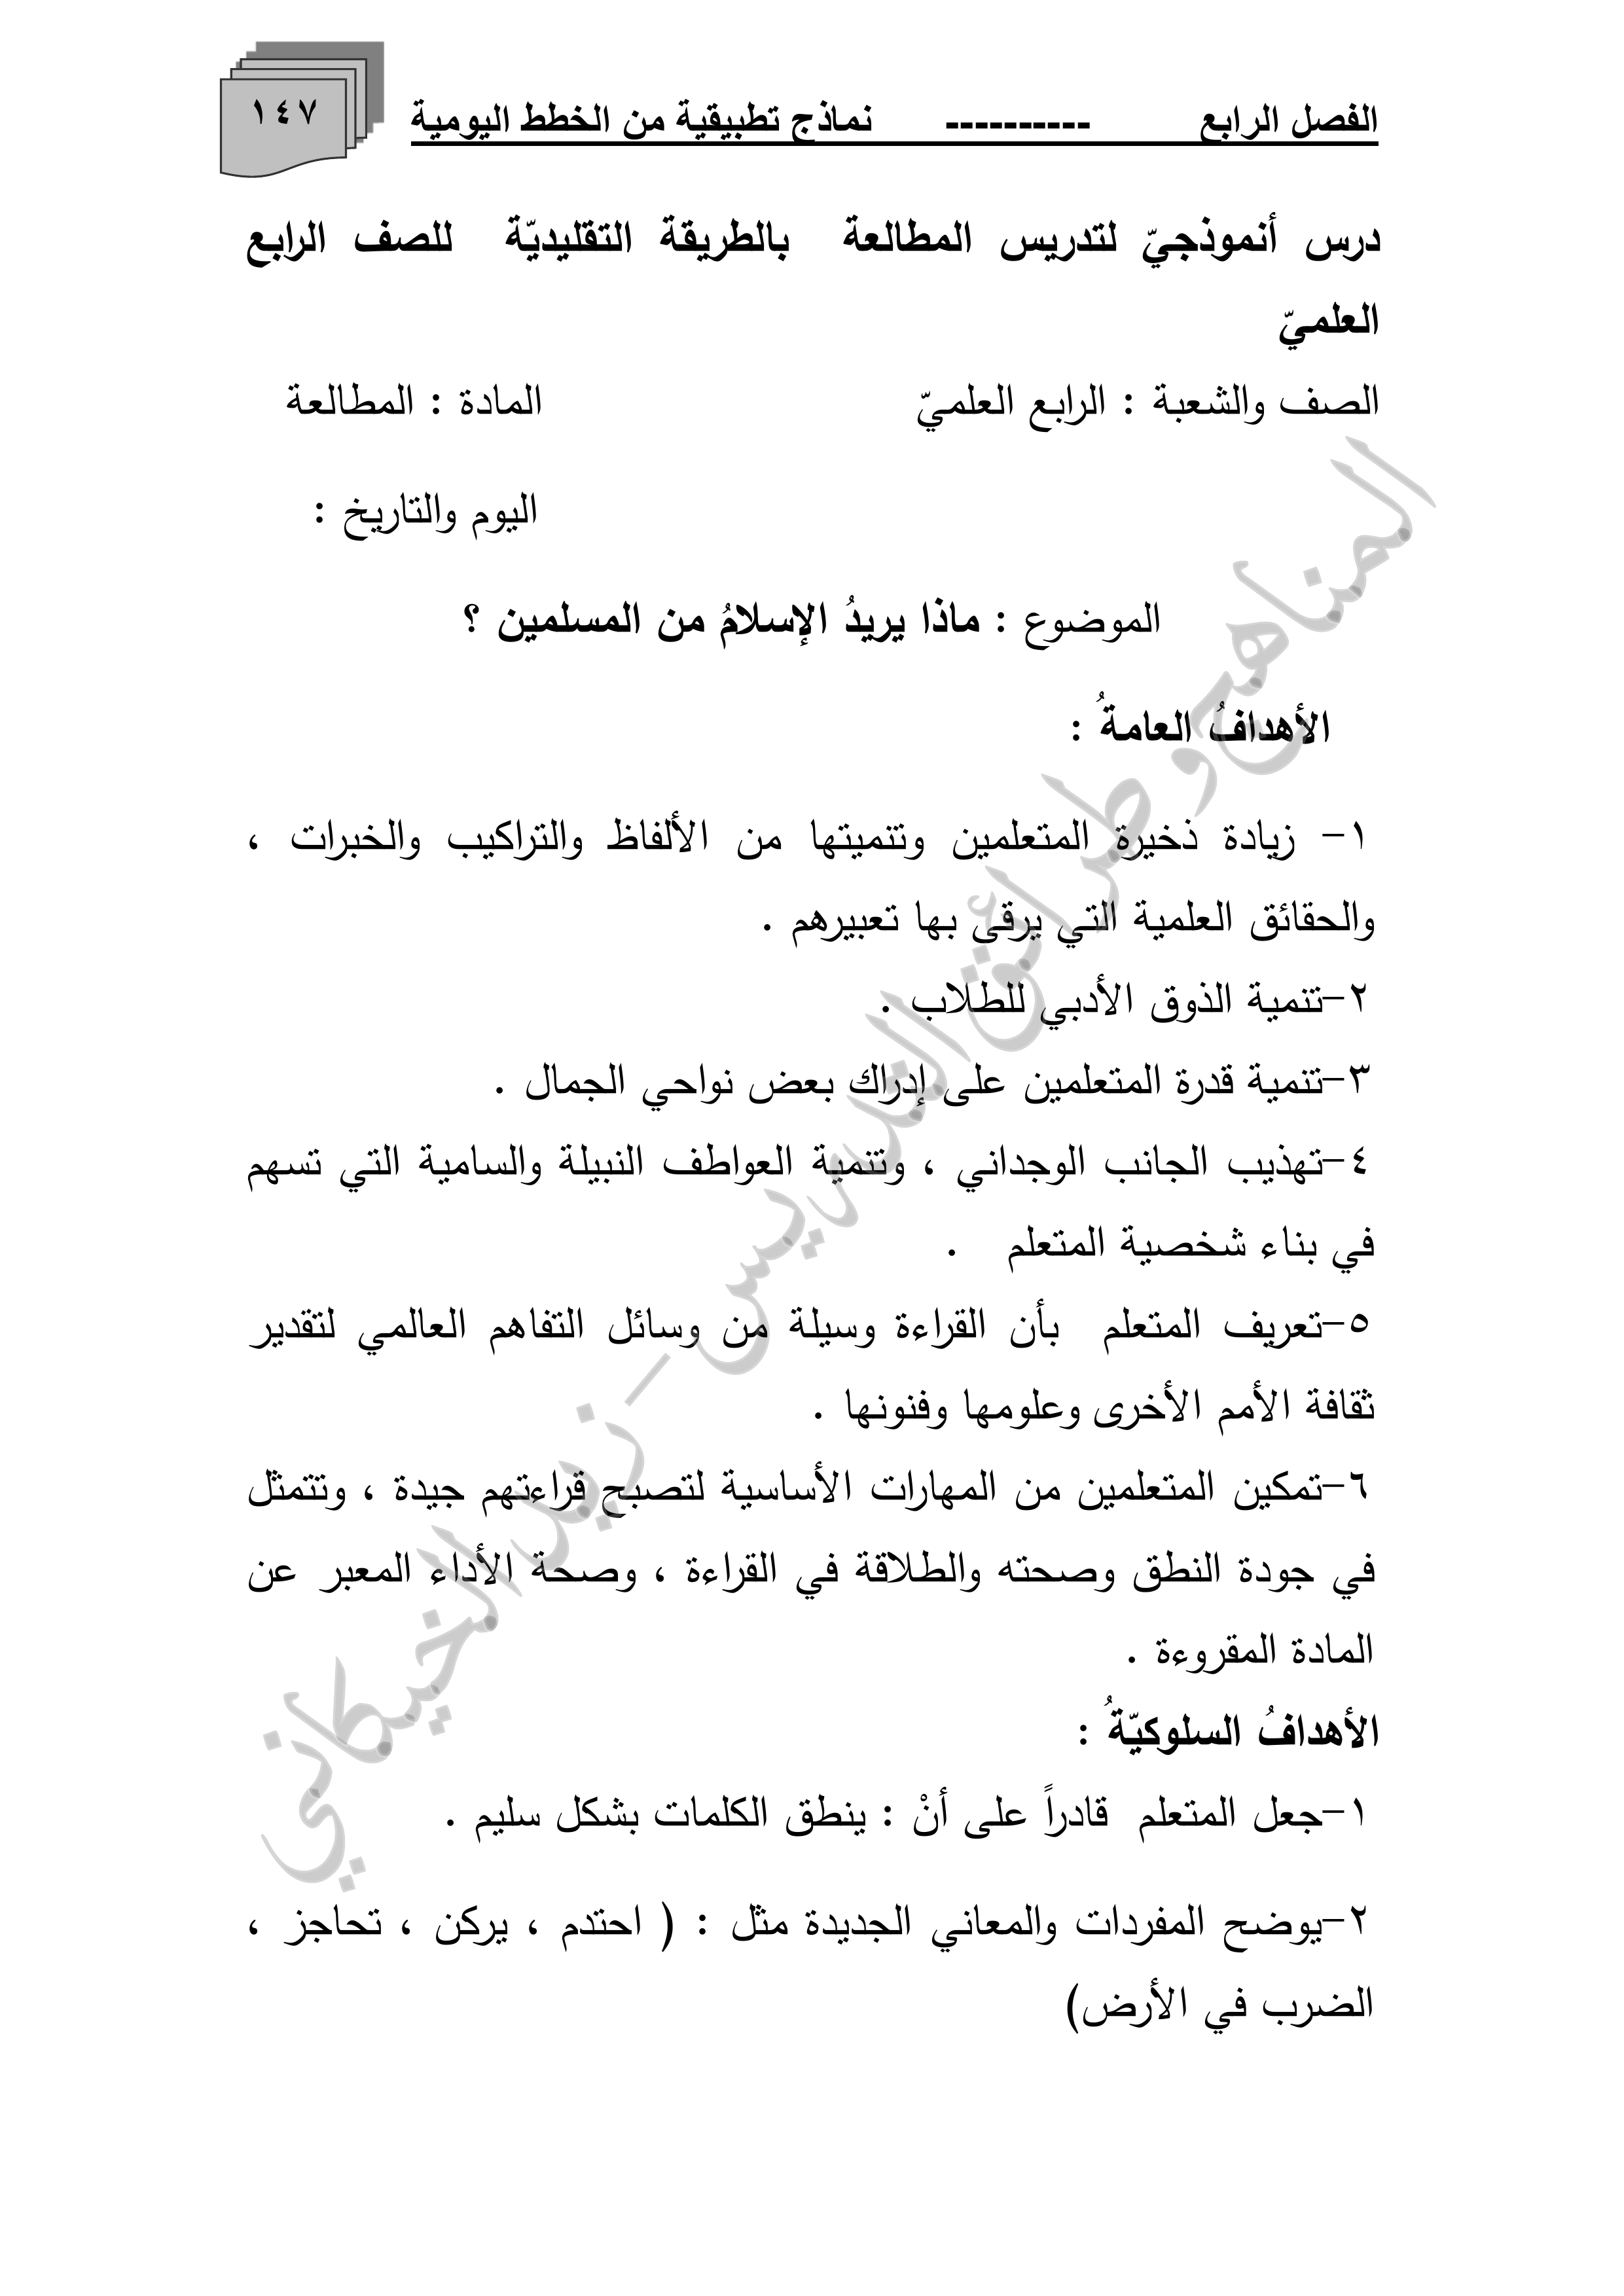 الفصل الرابع ---------- نماذج تطبيقية من الخطط اليومية
١٤٧
درس أنموذجيّ لتدريس المطالعة بالطريقة التقليديّة للصف الرابع
العلميّ
الصف والشعبة : الرابع العلميّ المادة : المطالعة
اليوم والتاريخ :
الموضوع : ماذا يريدُ الإسلامُ من المسلمين ؟
الأهدافُ العامةُ :
١- زيادة ذخيرة المتعلمين وتنميتها من الألفاظ والتراكيب والخبرات ،
والحقائق العلمية التي يرقى بها تعبيرهم .
٢-تنمية الذوق الأدبي للطلاب .
٣-تنمية قدرة المتعلمين على إدراك بعض نواحي الجمال .
٤-تهذيب الجانب الوجداني ، وتنمية العواطف النبيلة والسامية التي تسهم
في بناء شخصية المتعلم .
٥-تعريف المتعلم بأن القراءة وسيلة من وسائل التفاهم العالمي لتقدير
ثقافة الأمم الأخرى وعلومها وفنونها .
٦-تمكين المتعلمين من المهارات الأساسية لتصبح قراءتهم جيدة ، وتتمثل
في جودة النطق وصحته والطلاقة في القراءة ، وصحة الأداء المعبر عن
المادة المقروءة .
الأهدافُ السلوكيّةُ :
١-جعل المتعلم قادراً على أنْ : ينطق الكلمات بشكل سليم .
٢-يوضح المفردات والمعاني الجديدة مثل : ( احتدم ، يركن ، تحاجز ،
الضرب في الأرض)
المناهج وطرائق التدريس - زيد الخيكاني